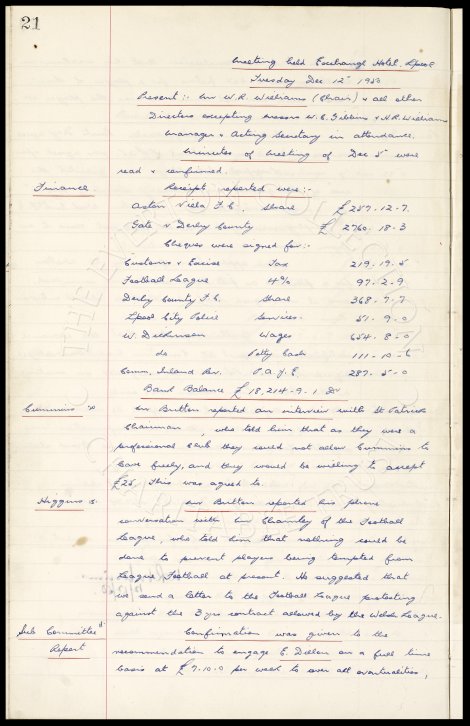 21
Meeting held Exchange Hotel, Lpool
Tuesday Dec 12th 1950
Present:- Mr W.R. Williams (Chair) & all other
Directors excepting Messrs W.C. Gibbins & H.R. Williams
Manager & Acting Secretary in attendance.
Minutes of meeting of Dec 5th were
read & confirmed.
Finance Receipts reported were:-
Aston Villa F.C. Share £257-12-7.
Gate v Derby County £ 2760-18-3
Cheques were signed for:-
Customs & Excise Tax 219-19-5
Football League 4% 97-2-9
Derby County F.C. Share 368-7-7
Lpool City Police Services. 51-9-0
W. Dickinson Wages 654-8-0
do Petty Cash 111-10-6
Comm, Inland Rev. P.A.Y.E. 287-5-0
Bank Balance £18,214-9-1 Dr
Cummins Mr Britton reported an interview with St Patricks
Chairman, who told him that as they were a
professional club they could not allow Cummins to
leave freely, and they would be willing to accept
£25. This was agreed to.
Higgins Mr Britton reported his phone
conversation with Mr Charnley of the Football
League, who told him that nothing could be
done to prevent players being tempted from
League Football at present. He suggested that
we send a letter to the Football League protesting
against the 3 yrs contract allowed by the Welsh League.
Sub Committee Confirmation was given to the
Report recommendation to engage E. Dillon on a full time
basis at £7-10-0 per week to cover all eventualities,